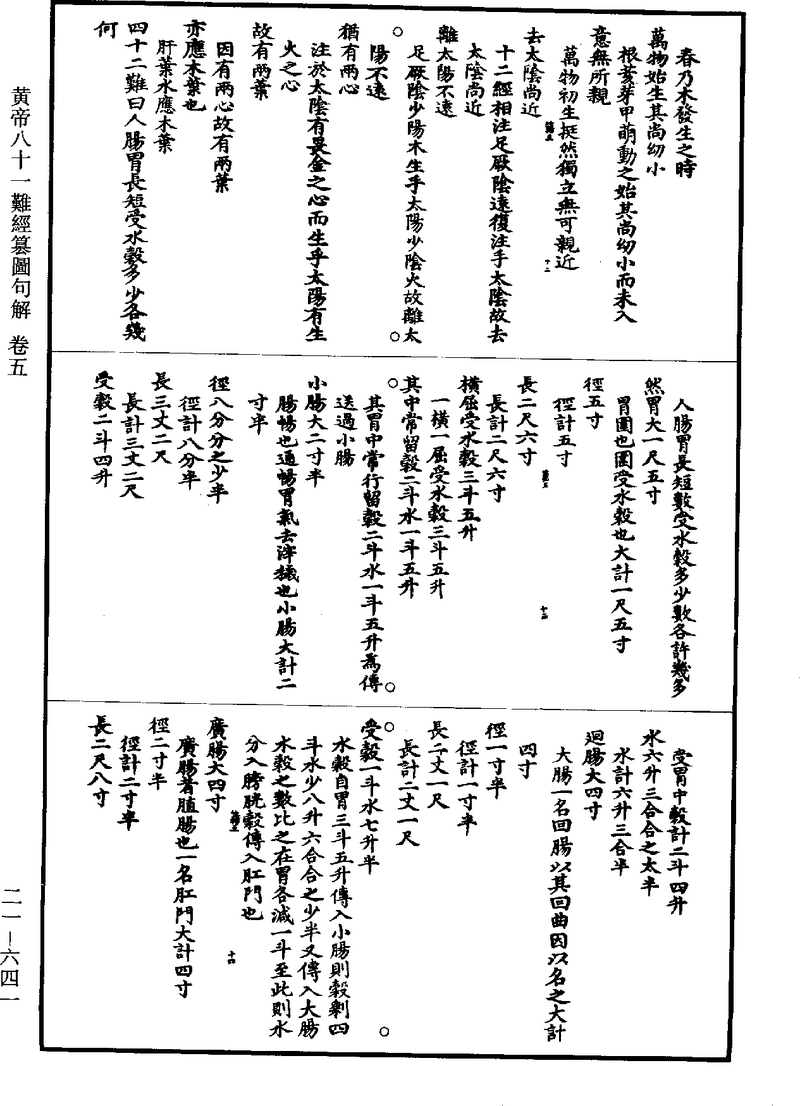 春乃木發生之時
萬物始生其尚幼小
根荄芽甲萌動之始其尚幼小而未入
意無所親
萬物初生挺然獨立無可親近
去太陰尚近
十二經相注足厥陰遠復注手太陰故去
太陰尚近
離太陽不遠
足厥陰少陽木生乎太陽少陰火故離太
陽不遠
猶有兩心
注於太陰有畏金之心而生乎太陽有生
火之心
故有兩葉
因有兩心故有兩葉
亦應木葉也
肝葉水應木葉
四十二難曰人腸胃長短受水穀多少各幾
何
人腸胃長短數受水穀多少數各許幾多
然胃大一尺五寸
胃圍也圍受水穀也大計一尺五寸
徑五寸
徑計五寸
長二尺六寸
長計二尺六寸
橫屈受水穀三斗五升
一橫一屈受水穀三斗五升
其中常留穀二斗水一斗五升
其胃中常行留穀二斗水一斗五升爲傳
送過小腸
小腸大二寸半
腸暢也通暢胃氣去滓穢也小腸大計二
寸半
徑八分分之少半
徑計八分半
長三丈二尺
長計三丈二尺
受穀二斗四升
受胃中穀計二斗四升
水六升三合合之太半
水計六升三合半
迴腸大四寸
大腸一名回腸以其回曲因以名之大計
四寸
徑一寸半
徑計一寸半
長二丈一尺
長計二丈一尺
受穀一斗水七升半
水穀自胃三斗五升傳入小腸則穀剩四
斗水少八升六合合之少半又傳入大腸
水穀之數比之在胃各減一斗至此則水
分入膀胱穀傳入肛門也
廣腸大四寸
廣腸者䐈腸也一名肛門大計四寸
徑二寸半
徑計二寸半
長二尺八寸
黄帝八十一難經纂圖句解 卷五
二一—六四一